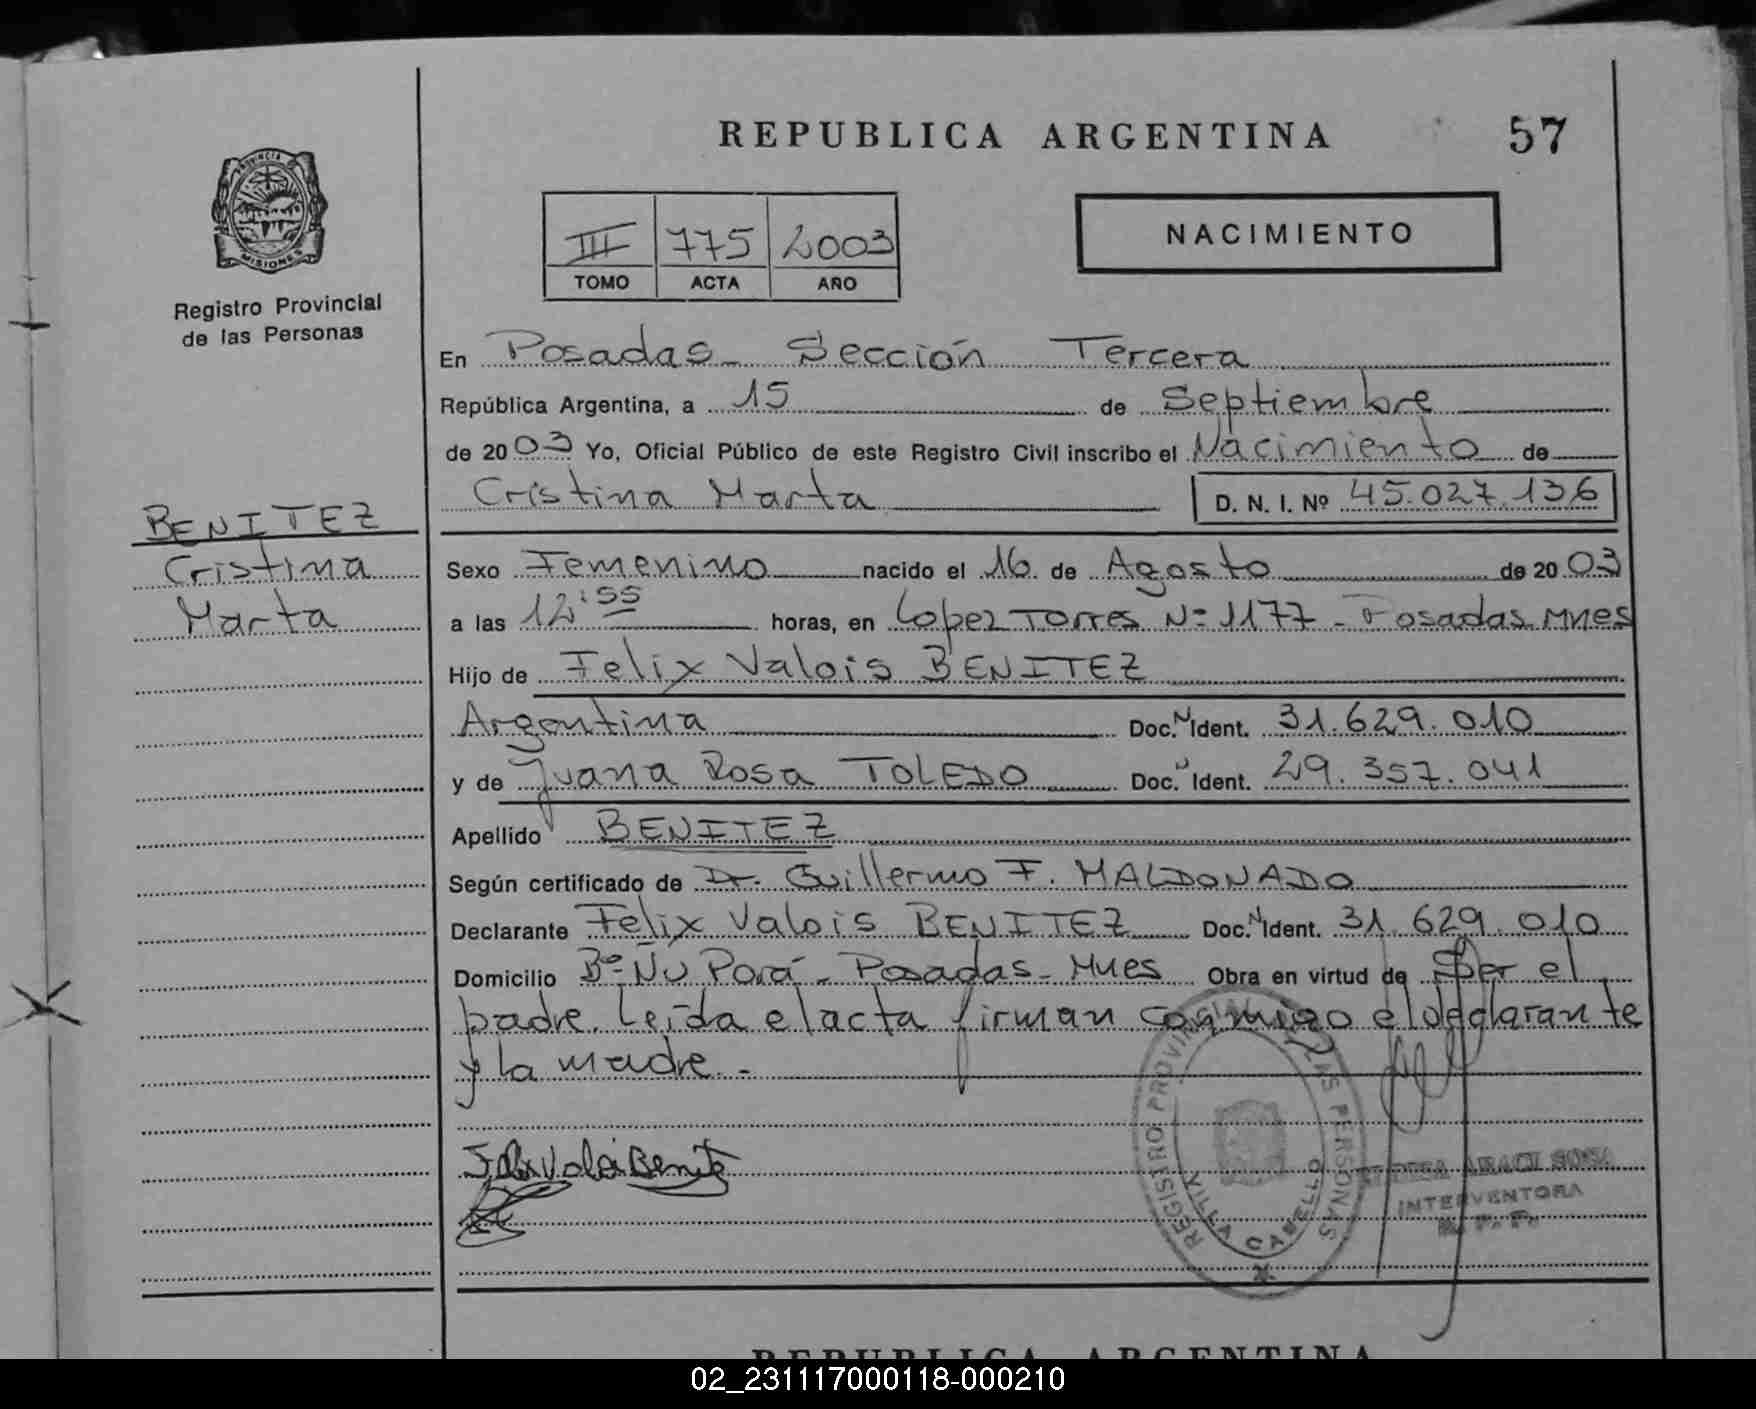 REPUBLICA ARGENTINA 57
PROVINCIA DE MISIONES
Registro Provincial
de las Personas
III 775 2003
TOMO ACTA AÑO
NACIMIENTO
En Posadas - Sección Tercera
República Argentina, a 15 de Septiembre
de 2003 Yo, Oficial Público de este Registro Civil inscribo el Nacimiento de
Cristina Marta D. N. I. Nº 45.027.136
BENITEZ
Cristina
Marta
Sexo Femenino nacido el 16 de Agosto de 2003
a las 12:55 horas, en Lopez Torres Nº 1177 - Posadas Mnes
Hijo de Felix Valois BENITEZ
Argentina Doc. N Ident. 31.629.010
y de Juana Rosa TOLEDO Doc. N Ident. 29.357.041
Apellido BENITEZ
Según certificado de Dr. Guillermo F. MALDONADO
Declarante Felix Valois BENITEZ Doc. N Ident. 31.629.010
Domicilio Bº Ñu Porá - Posadas - Mnes Obra en virtud de Ser el
padre. Leída el acta firman conmigo el declarante
y la madre. -
Felix Valoi Benite
REGISTRO PROVINCIAL DE LAS PERSONAS
VILLA CABELLO
SOSA
INTERVENTORA
R. P. P.
REPUBLICA ARGENTINA
02_231117000118-000210